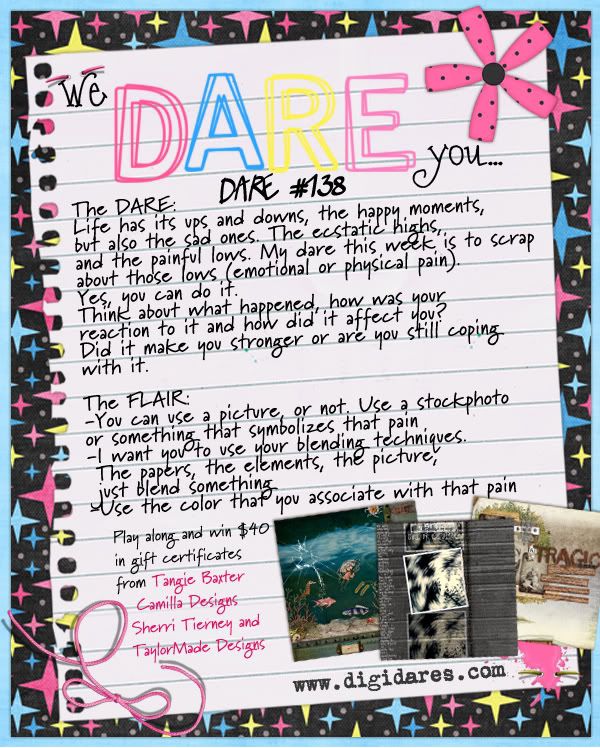 We
DARE
you...
DARE #138
The DARE:
Life has its ups and downs, the happy moments,
but also the sad ones. The ecstatic highs,
and the painful lows. My dare this week is to scrap
about those lows (emotional or physical pain).
Yes, you can do it.
Think about what happened, how was your
reaction to it and how did it affect you?
Did it make you stronger or are you still coping
with it.
The FLAIR:
-You can use a picture, or not. Use a stockphoto
or something that symbolizes that pain
-I want you to use your blending techniques.
The papers, the elements, the picture,
just blend something
-Use the color that you associate with that pain
Play along and win $40
in gift certificates
from Tangie Baxter
Camilla Designs
Sherri Tierney and
TaylorMade Designs
TRAGIC
www.digidares.com